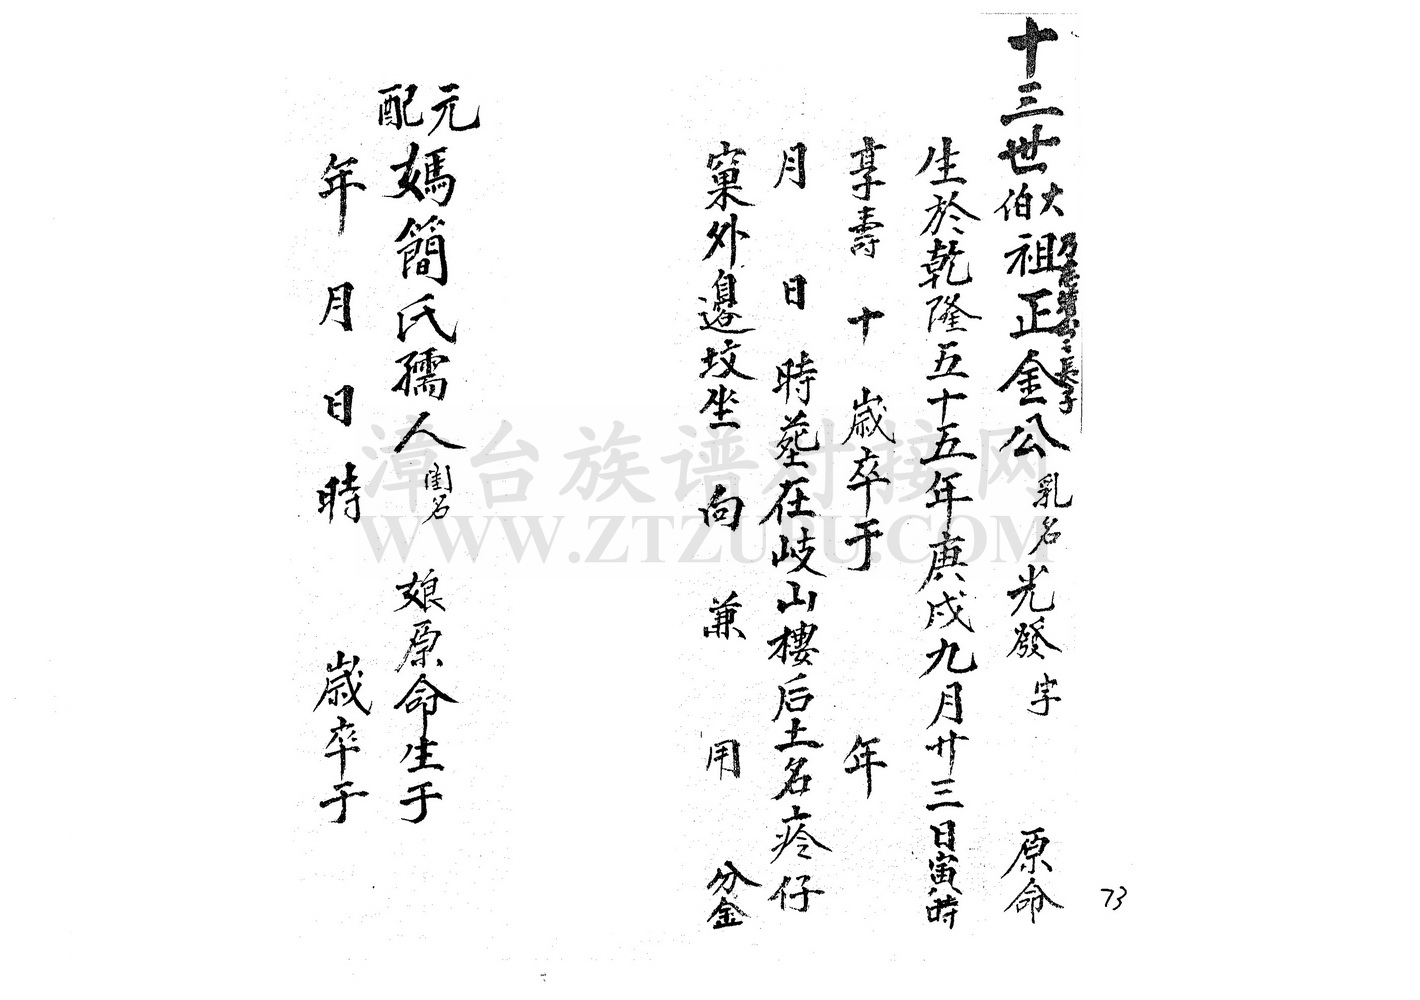 十三世大伯祖正金公乳名光發字 原命
之長子
生於乾隆五十五年庚戌九月廿三日寅時
享壽 十 歲卒于 年
月 日 時塟在岐山樓后土名疼仔
窠外邊坟坐 向 兼 用 分金
元配媽簡氏孺人閨名 娘原命生于
年 月 日 時 歲卒于
73
漳台族谱对接网
WWW.ZTZUPU.COM